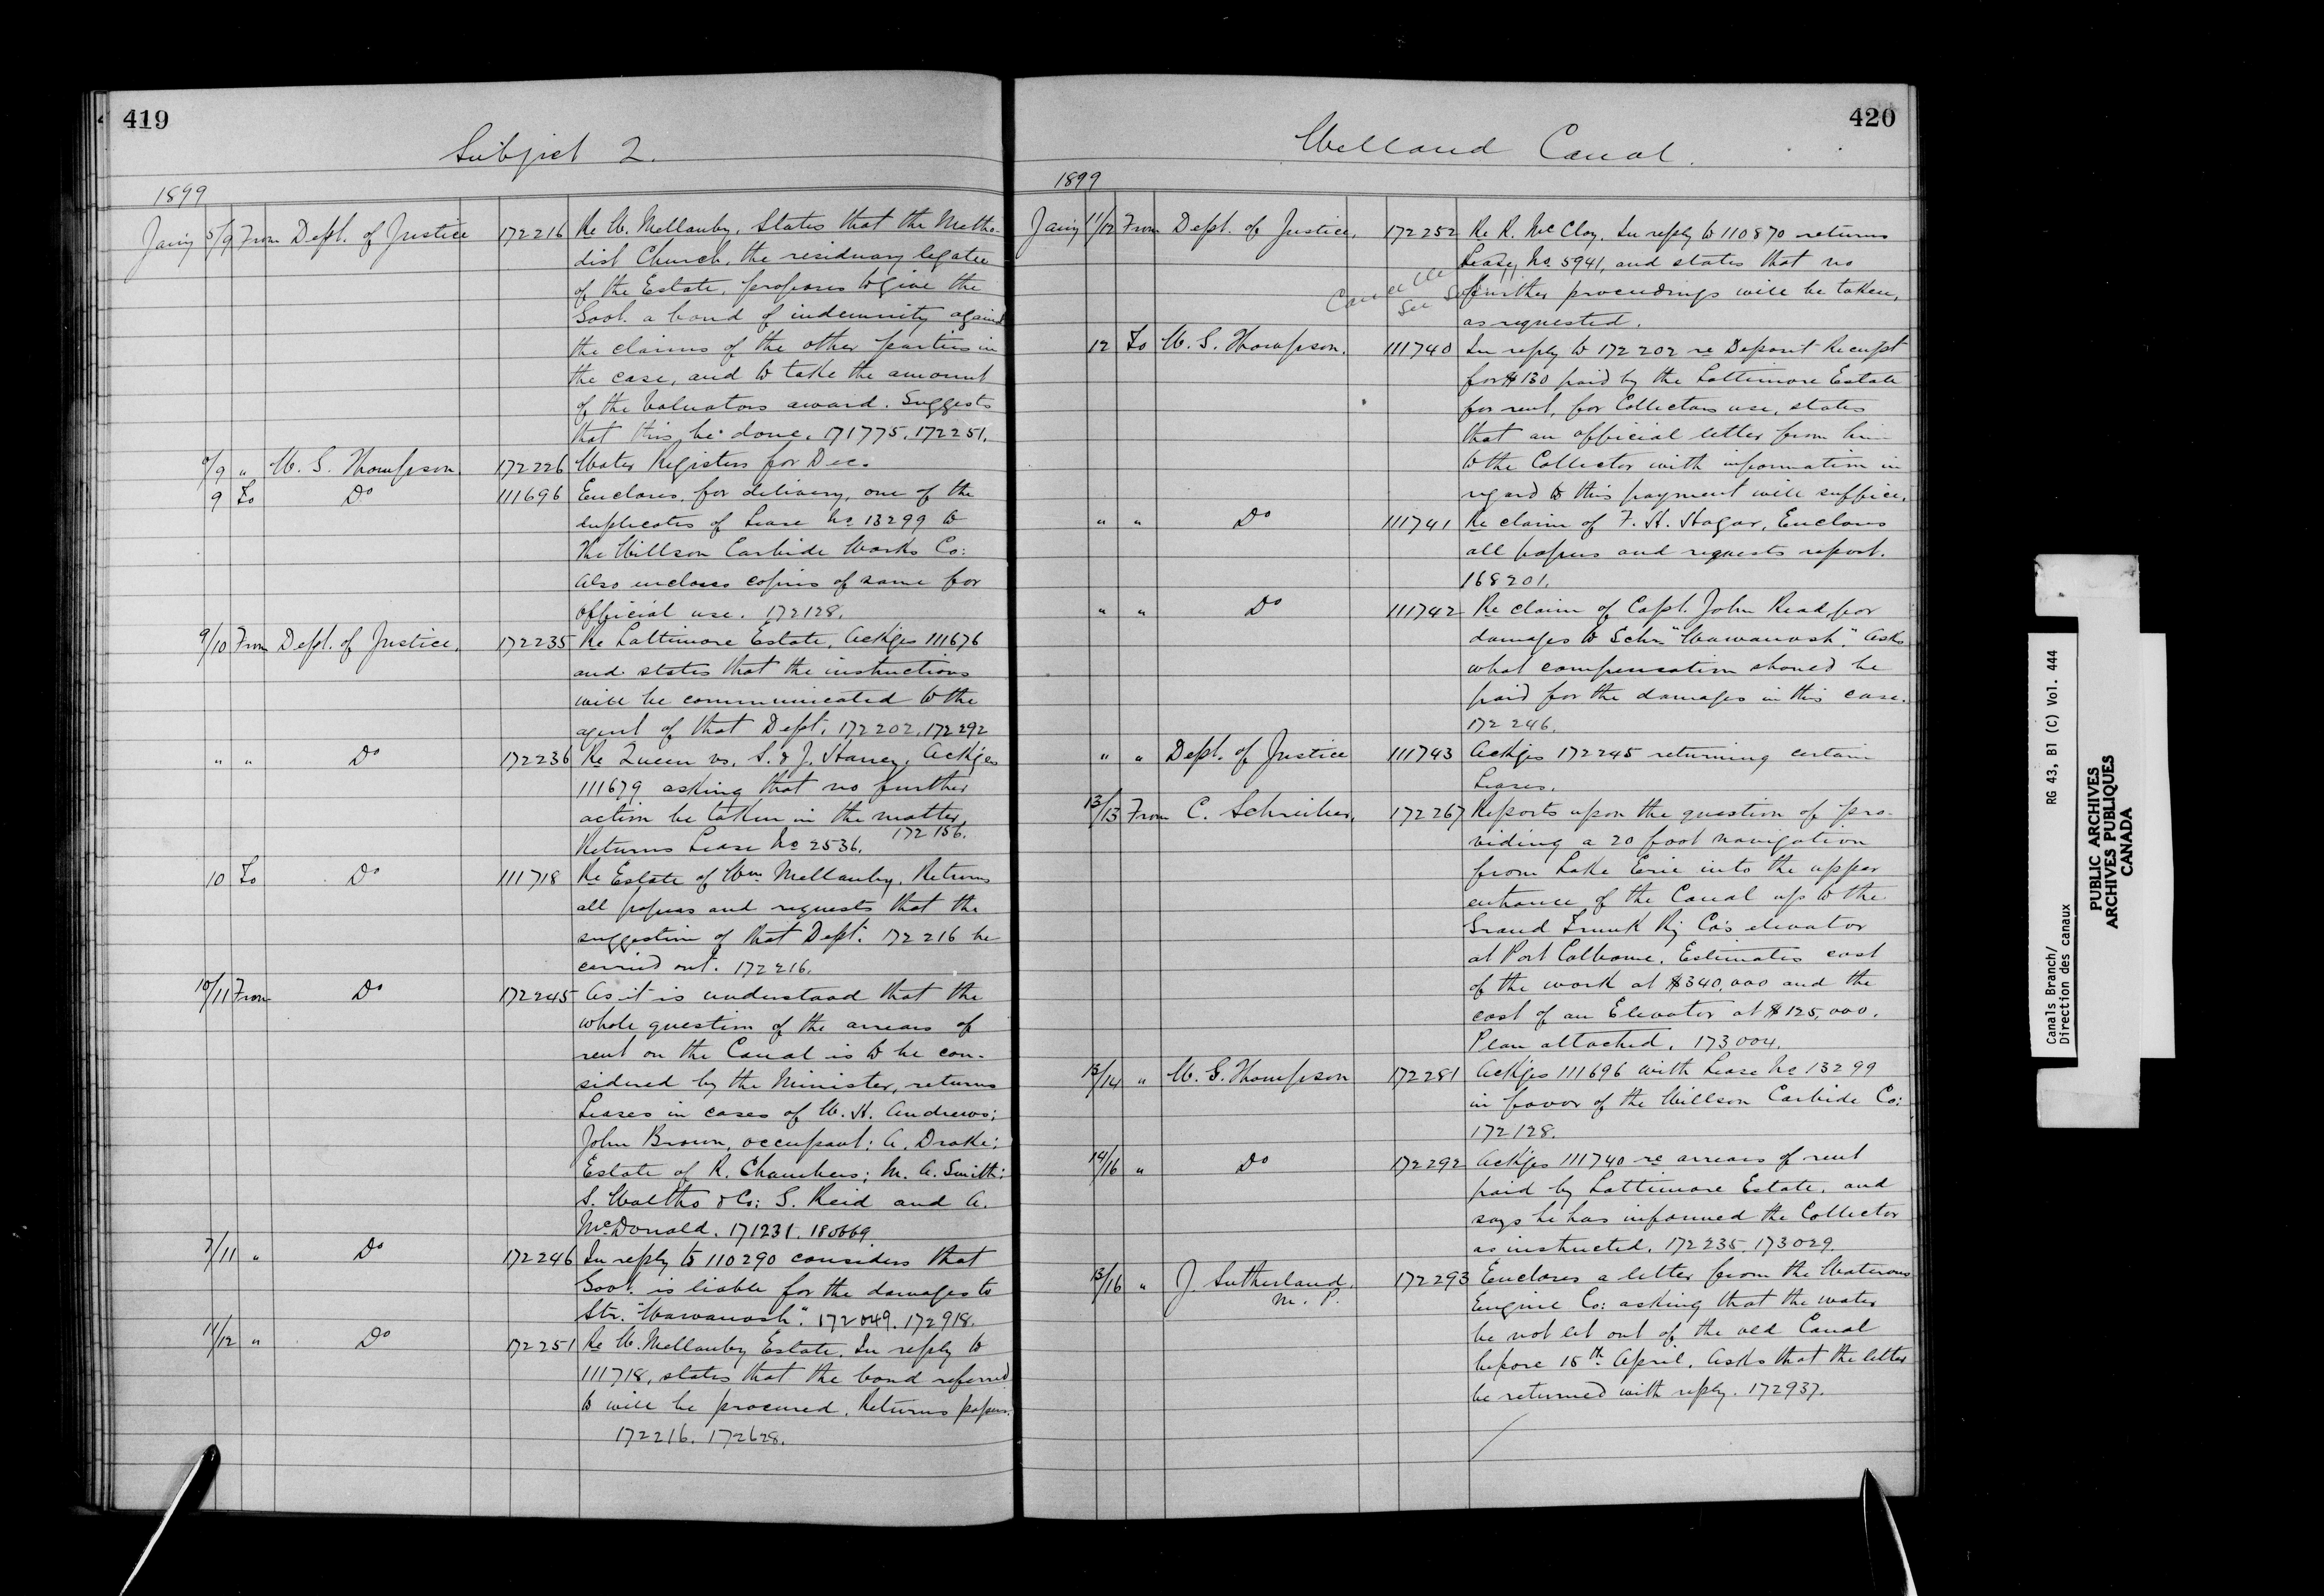 419
Subject 2.
1899
Jany 5/9 From Dept. of Justice 172216 Re W. Mellanby. States that the Metho-
dist Church, the residuary legatee
of the Estate, proposes to give the
Govt. a bond of indemnity against
the claims of the other parties in
the case, and to take the amount
of the Valuators award. Suggests
that this be done. 171775. 172251.
9/9 " W. G. Thompson. 172226 Water Registers for Dec.
9 To Do 111696 Encloses, for delivery, one of the
duplicates of Lease No 13299 to
the Willson Carbide Works Co:
also encloses copies of same for
official use. 172128.
9/10 From Dept. of Justice. 172235 Re Lattimore Estate. Ackges 111676
and states that the instructions
will be communicated to the
agent of that Dept. 172202. 172292
" " Do 172236 Re Queen vs. S. & J. Haney. Ackges
111679 asking that no further
action be taken in the matter.
Returns Lease No 2536. 172156.
10 To Do 111718 Re Estate of Wm Mellanby. Returns
all papers and requests that the
suggestion of that Dept. 172216 be
carried out. 172216.
10/11 From Do 172245 As it is understood that the
whole question of the arrears of
rent on the Canal is to be con-
sidered by the Minister, returns
Leases in cases of W. H. Andrews;
John Brown, occupant; A. Drake;
Estate of R. Chambers; M. A. Smith;
S. Waltho & Co; S. Reid and A.
McDonald. 171231. 180669.
7/11 " Do 172246 In reply to 110290 considers that
Govt. is liable for the damages to
Str. "Wawanosh". 172049. 172918.
11/12 " Do 172251 Re W. Mellanby Estate. In reply to
111718, states that the bond referred
to will be procured. Returns papers.
172216. 172628.
420
Welland Canal.
1899
Jany 11/12 From Dept. of Justice. 172252 Re R. McClay. In reply to 110870 returns
Lease No. 5941, and states that no
further proceedings will be taken,
as requested.
12 To W. G. Thompson. 111740 In reply to 172202 re Deposit Receipt
for $130 paid by the Lattimore Estate
for rent, for Collectors use, states
that an official letter from him
to the Collector with information in
regard to this payment will suffice.
" " Do 111741 Re claim of F. H. Hagar, Encloses
all papers and requests report.
168201.
" " Do 111742 Re claim of Capt. John Read for
damages to Schr. "Wawanosh". Asks
what compensation should be
paid for the damages in this case.
172246.
" " Dept. of Justice 111743 Ackges 172245 returning certain
Leases.
13/13 From C. Schreiber. 172267 Reports upon the question of pro-
viding a 20 foot navigation
from Lake Erie into the upper
entrance of the Canal up to the
Grand Trunk Ry Co's elevator
at Port Colborne. Estimates cost
of the work at $340,000 and the
cost of an Elevator at $125,000.
Plan attached. 173004.
13/14 " W. G. Thompson 172281 Ackges 111696 with Lease No 13299
in favor of the Willson Carbide Co:
172128.
14/16 " Do 172292 Ackges 111740 re arrears of rent
paid by Lattimore Estate, and
says he has informed the Collector
as instructed. 172235. 173029.
13/16 " J. Sutherland. M. P. 172293 Encloses a letter from the Waterous
Engine Co: asking that the water
be not let out of the old Canal
before 15th April. Asks that the letter
be returned with reply. 172937.
Canals Branch/ RG 43, B1 (C) Vol. 444
Direction des canaux
PUBLIC ARCHIVES
ARCHIVES PUBLIQUES
CANADA